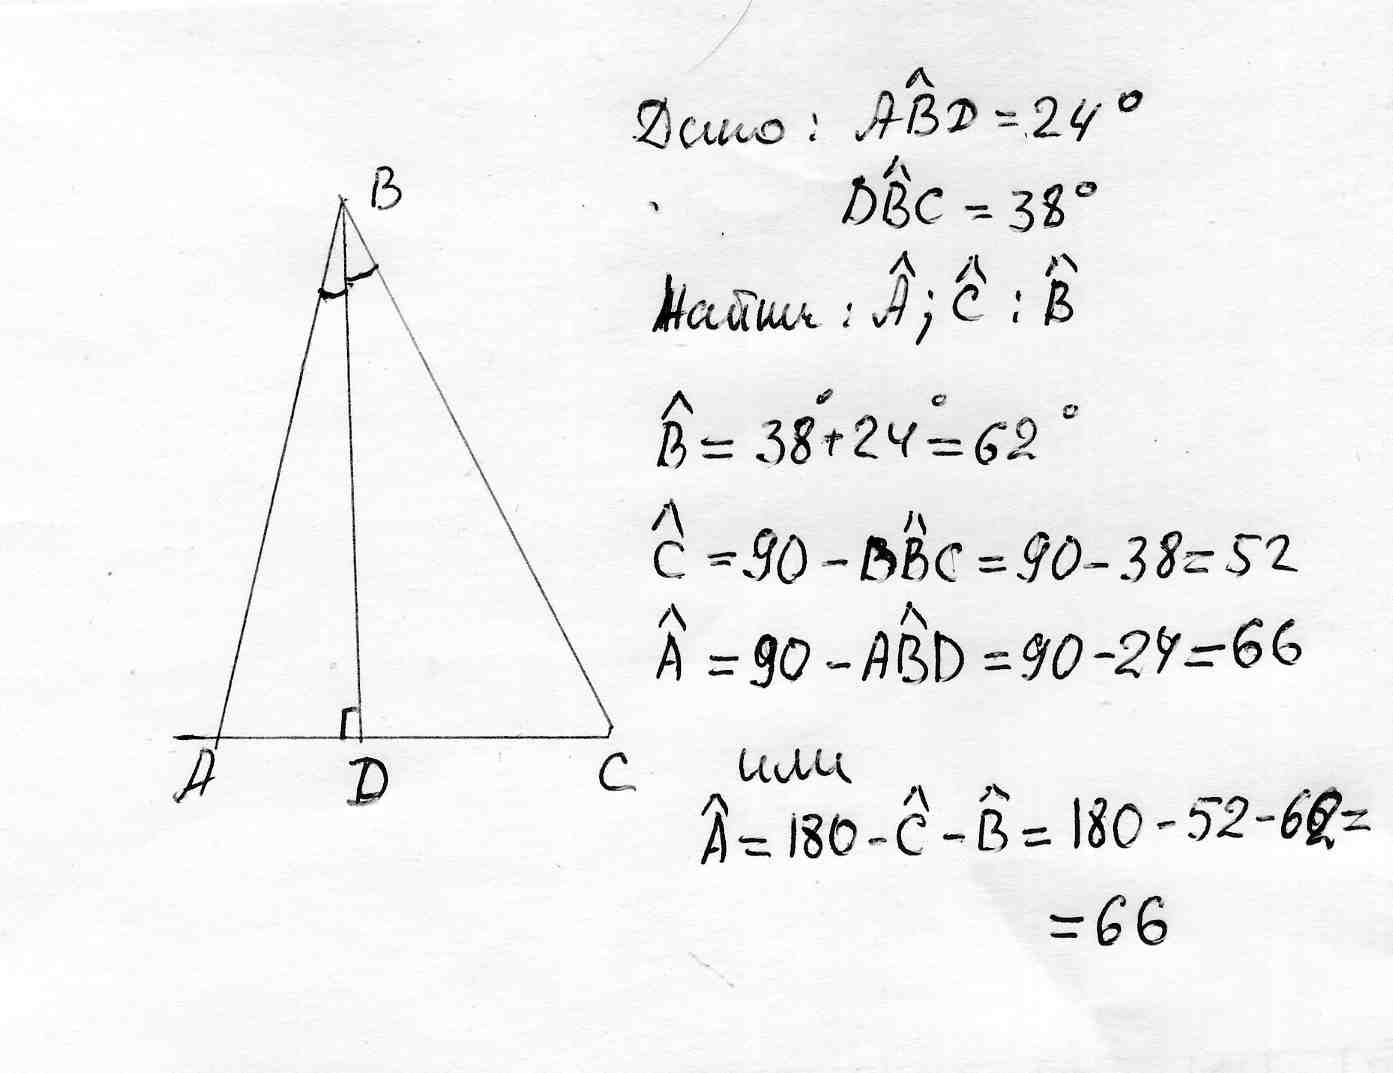 B
A
D
C
Дано: AB̂D = 24°
DB̂C = 38°
Найти: Â; Ĉ; B̂
B̂ = 38°+24°=62°
Ĉ = 90 - DB̂C = 90 - 38 = 52
Â = 90 - AB̂D = 90 - 24 = 66
или
Â = 180 - Ĉ - B̂ = 180 - 52 - 62 =
= 66